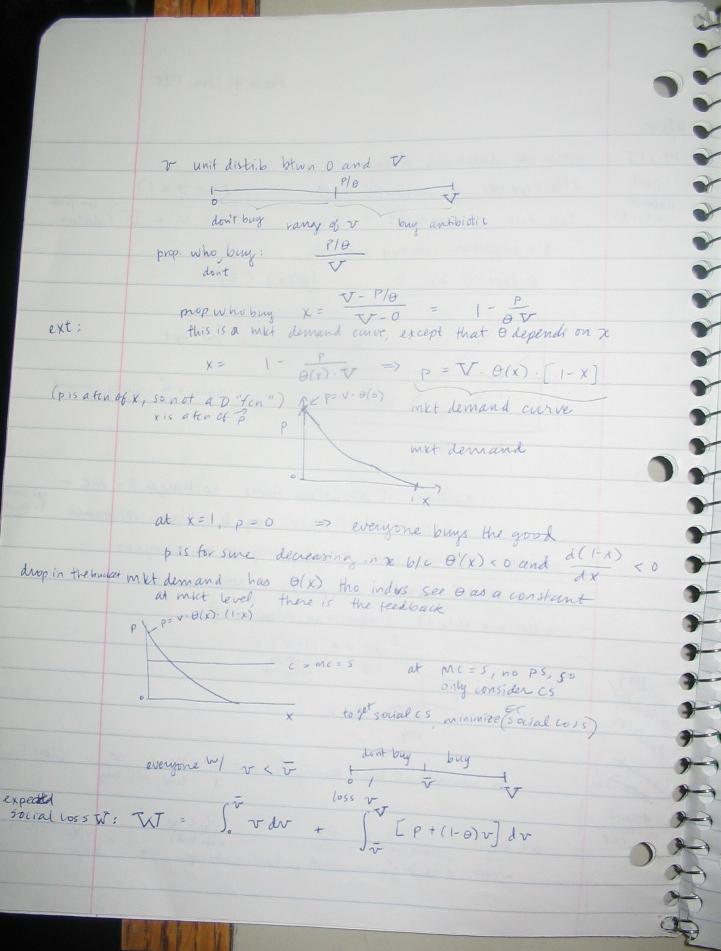 v unif distrib btwn 0 and V
P/θ
0 V
don't buy range of v buy antibiotic
prop. who buy: P/θ / V
don't
prop who buy x = V - P/θ / V - 0 = 1 - P / θ V
ext: this is a mkt demand curve, except that θ depends on x
x = 1 - P / θ(x)·V ⇒ p = V·θ(x)·[1-x]
(p is a fcn of x, so not a D "fcn") p = V·θ(0) mkt demand curve
x is a fcn of p
p mkt demand
0 1 x
at x=1, p=0 ⇒ everyone buys the good
p is for sure decreasing in x b/c θ'(x) < 0 and d(1-x)/dx < 0
drop in the bucket mkt demand has θ(x) tho indivs see θ as a constant
at mkt level, there is the feedback
p p = V·θ(x)·(1-x)
c = MC = s at MC = s, no PS, so
only consider CS
0 x
to get social CS, minimize (social loss)
don't buy buy
everyone w/ v < v̄ 0 v̄ V
loss v
expected
social loss W: W = ∫₀^v̄ v dv + ∫_v̄^V [p + (1-θ)v] dv